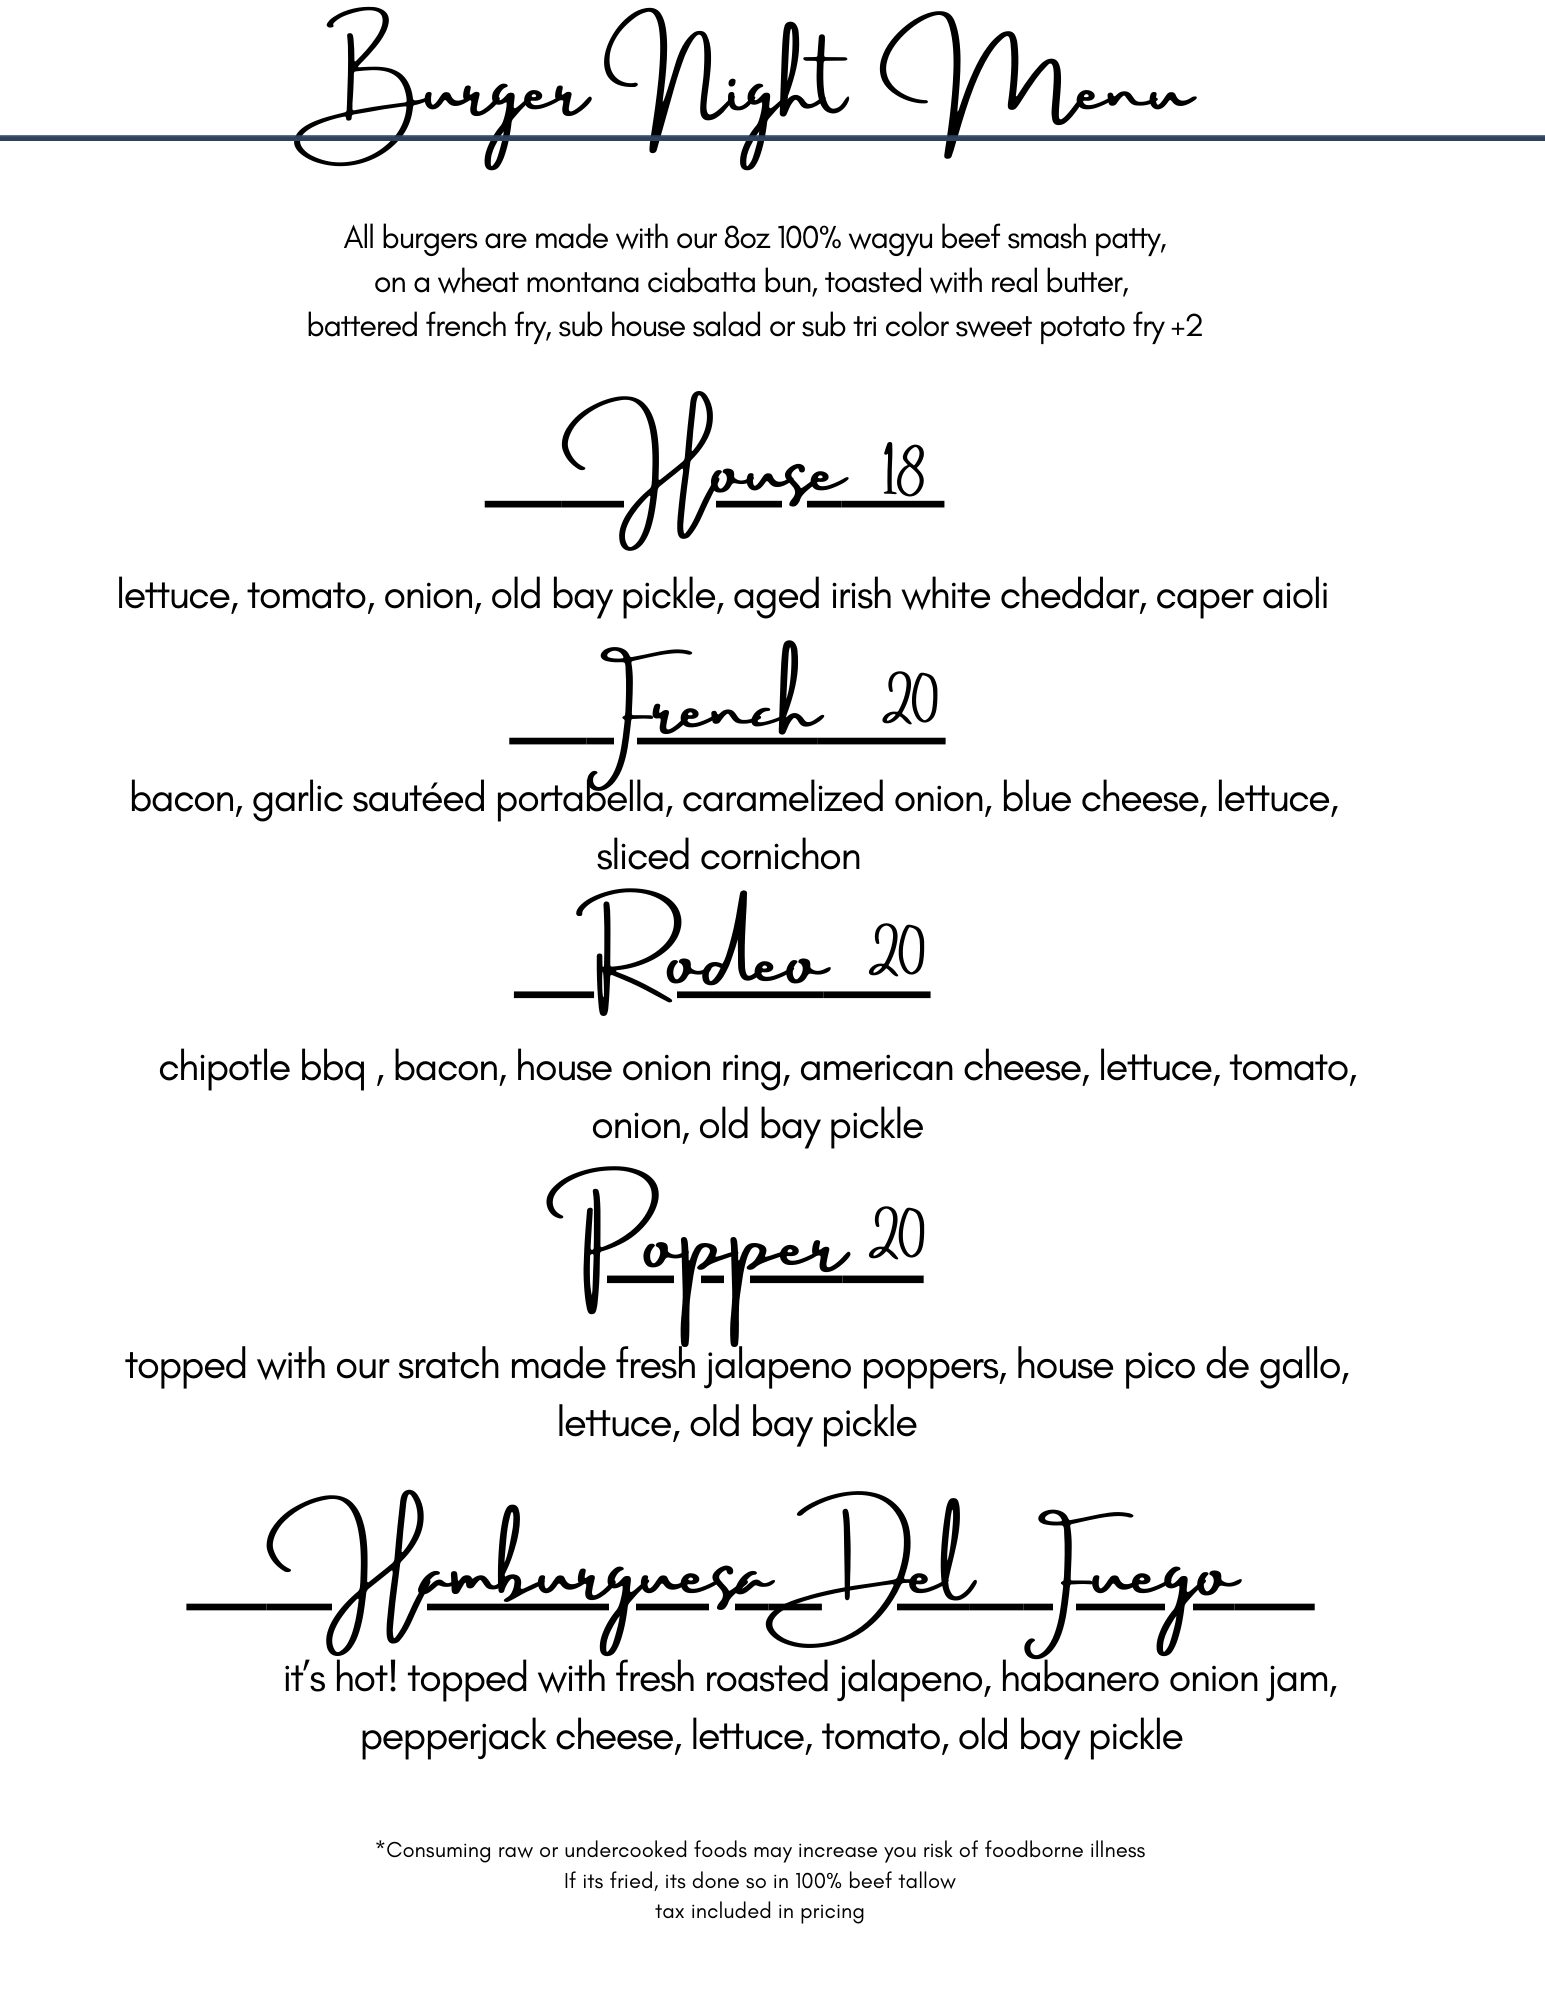 Burger Night Menu
All burgers are made with our 8oz 100% wagyu beef smash patty,
on a wheat montana ciabatta bun, toasted with real butter,
battered french fry, sub house salad or sub tri color sweet potato fry +2
House 18
lettuce, tomato, onion, old bay pickle, aged irish white cheddar, caper aioli
French 20
bacon, garlic sautéed portabella, caramelized onion, blue cheese, lettuce,
sliced cornichon
Rodeo 20
chipotle bbq , bacon, house onion ring, american cheese, lettuce, tomato,
onion, old bay pickle
Popper 20
topped with our sratch made fresh jalapeno poppers, house pico de gallo,
lettuce, old bay pickle
Hamburguesa Del Fuego
it's hot! topped with fresh roasted jalapeno, habanero onion jam,
pepperjack cheese, lettuce, tomato, old bay pickle
*Consuming raw or undercooked foods may increase you risk of foodborne illness
If its fried, its done so in 100% beef tallow
tax included in pricing